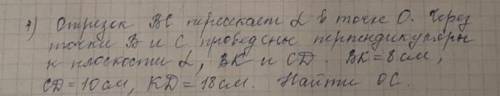 7) Отрезок ВС пересекает α в точке О. Через
точки В и С проведены перпендикуляры
к плоскости α, ВК и СД. ВК=8см,
СД=10см, КД=18см. Найти ОС.